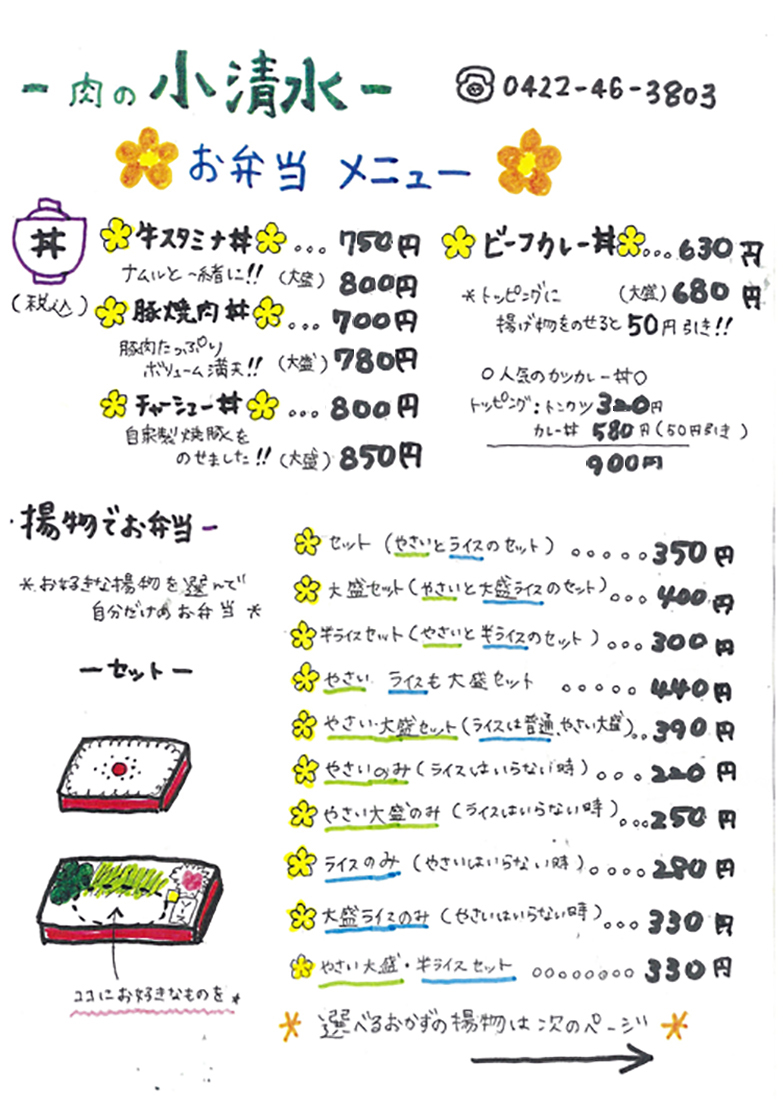 - 肉の 小清水 - ☎ 0422-46-3803
お弁当 メニュー
丼
(税込)
牛スタミナ丼 ... 750円
ナムルと一緒に!! (大盛) 800円
豚焼肉丼 ... 700円
豚肉たっぷり
ボリューム満天!! (大盛) 780円
チャーシュー丼 ... 800円
自家製焼豚を
のせました!! (大盛) 850円
ビーフカレー丼 ... 630円
*トッピングに (大盛) 680円
揚げ物をのせると 50円引き!!
○人気のカツカレー丼○
トッピング:トンカツ 320円
カレー丼 580円(50円引き)
900円
・揚物でお弁当-
*お好きな揚物を選んで
自分だけのお弁当*
-セット-
ココにお好きなものを*
セット (やさいとライスのセット) ○○○○○ 350円
大盛セット(やさいと大盛ライスのセット)○○○ 400円
半ライスセット(やさいと半ライスのセット)○○○ 300円
やさい ライスも大盛セット ○○○○○ 440円
やさい・大盛セット(ライスは普通、やさい大盛)○○ 390円
やさいのみ(ライスはいらない時)○○○ 220円
やさい大盛のみ (ライスはいらない時)○○○ 250円
ライスのみ (やさいはいらない時) ○○○○ 280円
大盛ライスのみ (やさいはいらない時)○○○ 330円
やさい大盛・半ライスセット ○○○○○○○○ 330円
* 選べるおかずの揚物は次のページ *